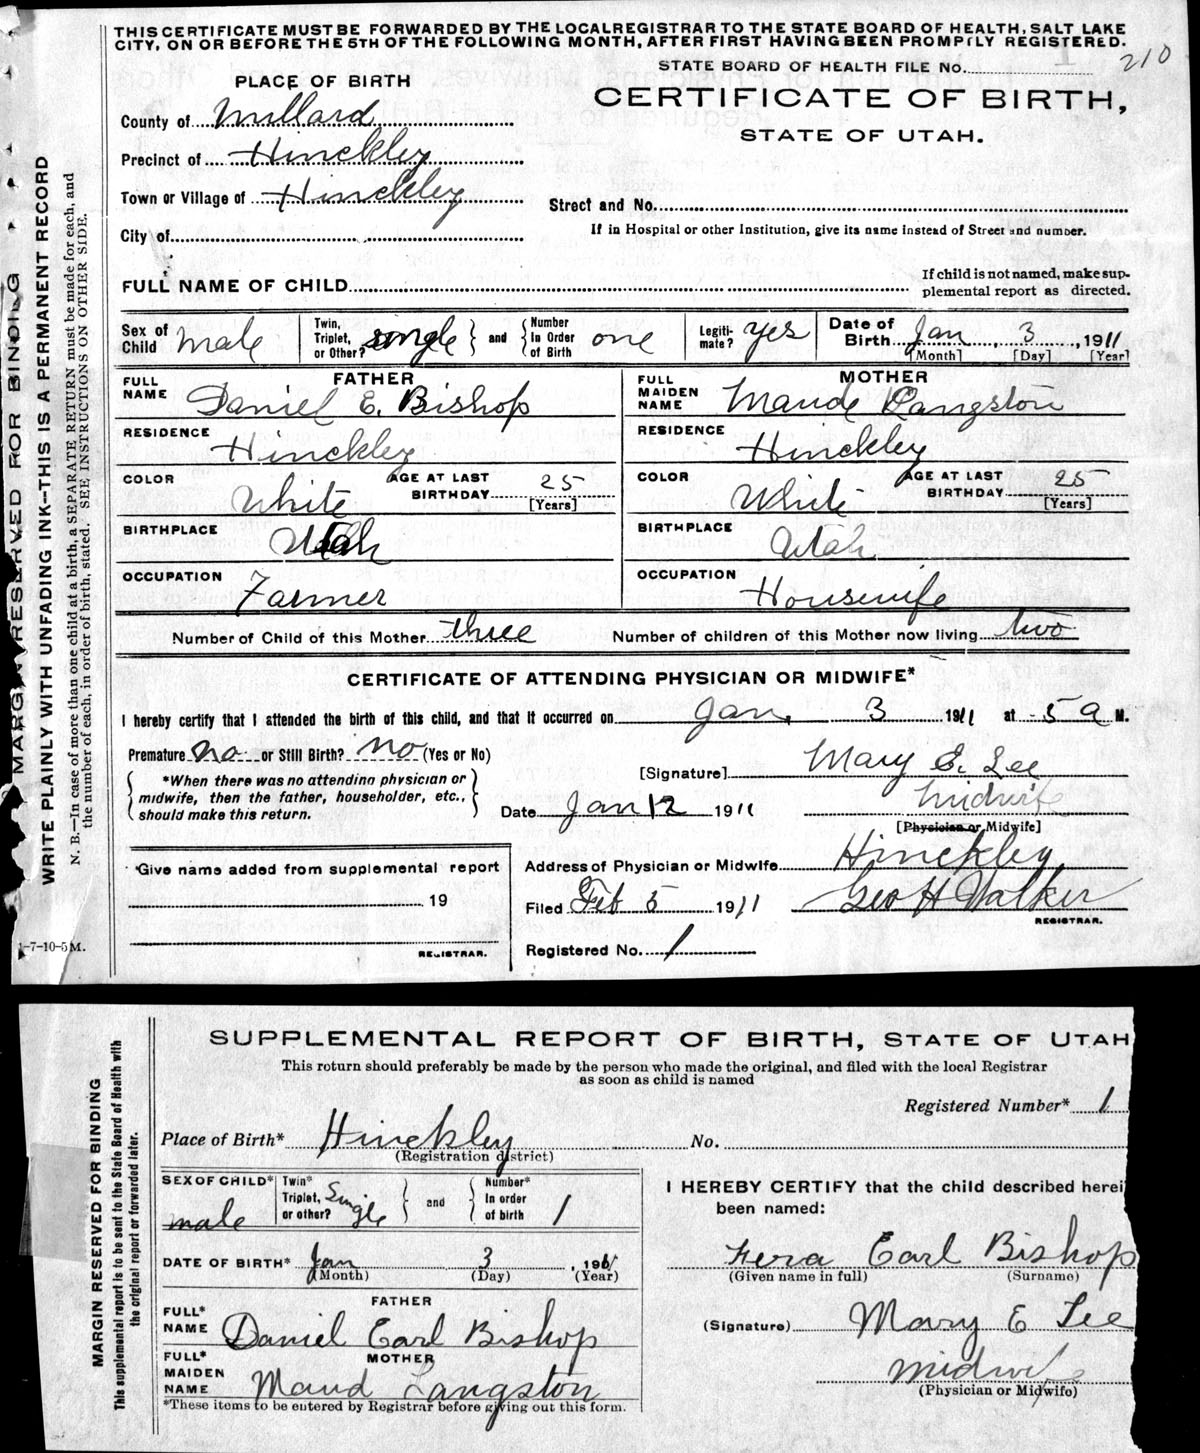 THIS CERTIFICATE MUST BE FORWARDED BY THE LOCAL REGISTRAR TO THE STATE BOARD OF HEALTH, SALT LAKE
CITY, ON OR BEFORE THE 5TH OF THE FOLLOWING MONTH, AFTER FIRST HAVING BEEN PROMPTLY REGISTERED.
210
STATE BOARD OF HEALTH FILE No.
PLACE OF BIRTH
CERTIFICATE OF BIRTH,
STATE OF UTAH.
County of Millard
Precinct of Hinckley
Town or Village of Hinckley
Street and No.
City of
If in Hospital or other Institution, give its name instead of Street and number.
FULL NAME OF CHILD
If child is not named, make sup-
plemental report as directed.
Sex of Child male
Twin, Triplet, or Other? single and Number In Order of Birth one
Legiti-mate? yes
Date of Birth Jan 3, 1911
[Month] [Day] [Year]
FATHER
FULL NAME Daniel E. Bishop
RESIDENCE Hinckley
COLOR White AGE AT LAST BIRTHDAY 25
[Years]
BIRTHPLACE Utah
OCCUPATION Farmer
MOTHER
FULL MAIDEN NAME Maude Langston
RESIDENCE Hinckley
COLOR White AGE AT LAST BIRTHDAY 25
[Years]
BIRTHPLACE Utah
OCCUPATION Housewife
Number of Child of this Mother three Number of children of this Mother now living two
CERTIFICATE OF ATTENDING PHYSICIAN OR MIDWIFE*
I hereby certify that I attended the birth of this child, and that it occurred on Jan. 3 1911 at 5 a M.
Premature no or Still Birth? no (Yes or No)
*When there was no attending physician or
midwife, then the father, householder, etc.,
should make this return.
[Signature] Mary E. Lee
Midwife
[Physician or Midwife]
Date Jan 12 1911
Address of Physician or Midwife Hinckley
Give name added from supplemental report
19
REGISTRAR.
Filed Feb 5 1911 Geo H Walker
REGISTRAR.
Registered No. 1
MARGIN RESERVED FOR BINDING
WRITE PLAINLY WITH UNFADING INK—THIS IS A PERMANENT RECORD
N. B.—In case of more than one child at a birth, a SEPARATE RETURN must be made for each, and
the number of each, in order of birth, stated. SEE INSTRUCTIONS ON OTHER SIDE.
-7-10-5M.
SUPPLEMENTAL REPORT OF BIRTH, STATE OF UTAH
This return should preferably be made by the person who made the original, and filed with the local Registrar
as soon as child is named
Registered Number* 1
Place of Birth* Hinckley No.
(Registration district)
SEX OF CHILD* male
Twin* Triplet, or other? Single and Number* In order of birth 1
DATE OF BIRTH* Jan 3, 1911
(Month) (Day) (Year)
FATHER
FULL* NAME Daniel Earl Bishop
MOTHER
FULL* MAIDEN NAME Maud Langston
*These items to be entered by Registrar before giving out this form.
I HEREBY CERTIFY that the child described herei
been named:
Fera Earl Bishop
(Given name in full) (Surname)
(Signature) Mary E Lee
Midwife
(Physician or Midwife)
MARGIN RESERVED FOR BINDING
This supplemental report is to be sent to the State Board of Health with
the original report or forwarded later.